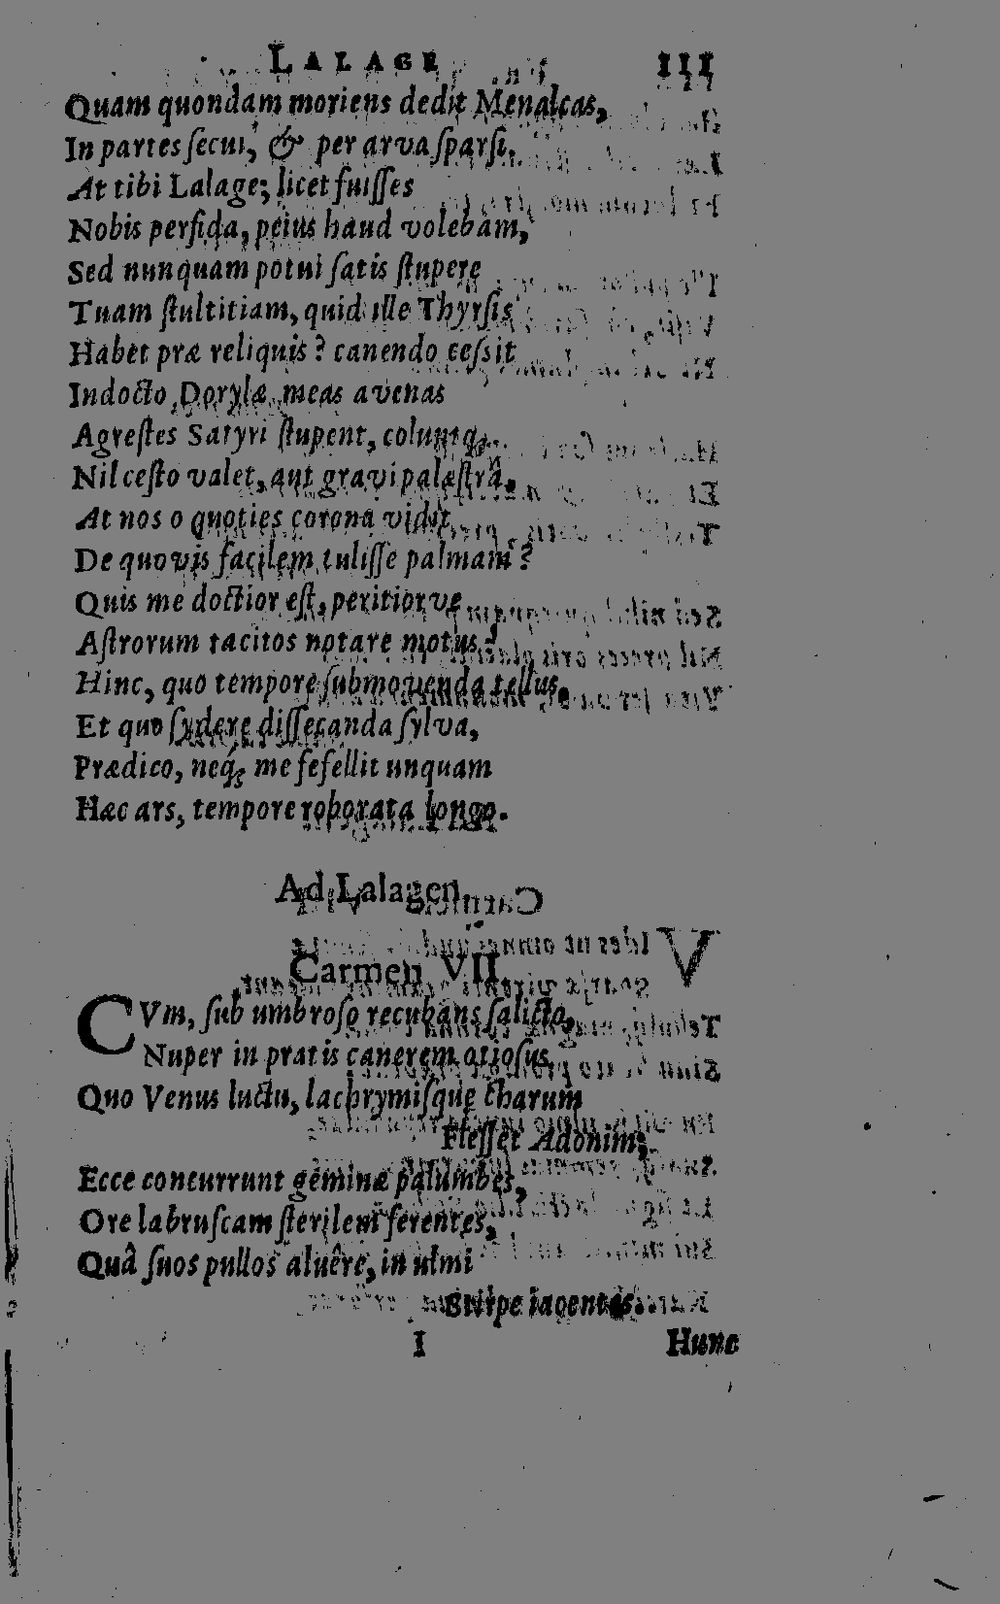 LALAGE III
Quam quondam moriens dedit Menalcas,
In partes ſecui, & per arva ſparſi.
At tibi Lalage; licet fuiſſes
Nobis perfida, peius haud volebam,
Sed nunquam potui ſatis ſtupere
Tuam ſtultitiam, quid ille Thyrſis
Habet præ reliquis? canendo ceſsit
Indocto Dorylæ, meas avenas
Agreſtes Satyri ſtupent,
Nil ceſto valet, aut gravi palæſtrâ,
At nos o quoties corona vidit
De quovis facilem tuliſſe palmam?
Quis me doctior eſt, peritiorve
Aſtrorum tacitos notare motus?
Hinc, quo tempore ſubmovenda tellus,
Et quo ſydere diſſecanda ſylva,
Prædico, neq́; me fefellit unquam
Hæc ars, tempore roborata longo.
Ad Lalagen
Carmen VII.
CVm, ſub umbroſo recubans ſalicto,
Nuper in pratis canerem otioſus,
Quo Venus luctu, lachrymiſque charum
Fleſſet Adonim;
Ecce concurrunt geminæ palumbes,
Ore labruſcam ſterilem ferentes,
Quâ ſuos pullos aluêre, in ulmi
Stirpe iacentes.
I Hunc